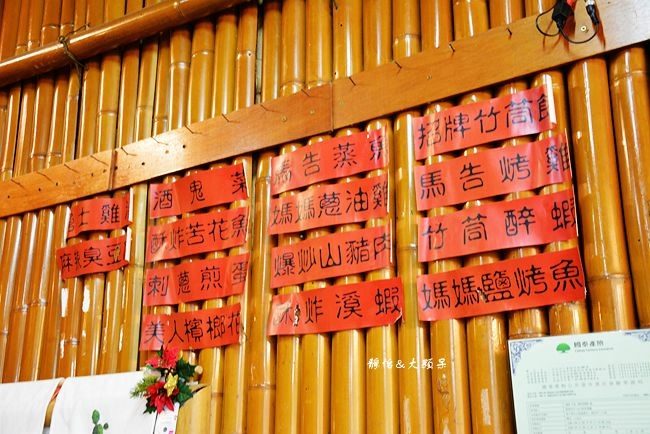 招牌竹筒飯
馬告烤雞
竹筒醉蝦
媽媽鹽烤魚
馬告蒸魚
媽媽蔥油雞
爆炒山豬肉
酥炸溪蝦
酒鬼菜
酥炸苦花魚
刺蔥煎蛋
美人檳榔花
土雞
麻辣臭豆
靜怡&大顆呆
國泰產險